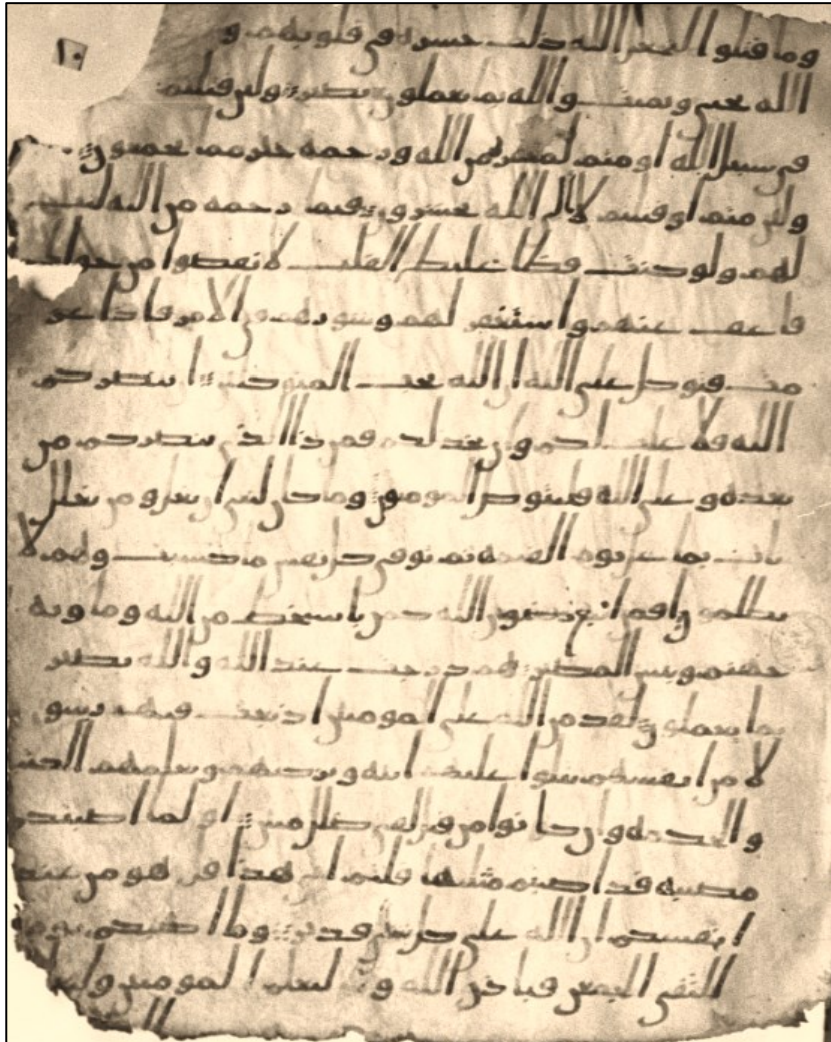 ١٠
وما قتلوا ليجعل الله ذلك حسرة في قلوبهم و
الله يحيى ويميت والله بما تعملون بصير ولئن قتلتم
في سبيل الله او متم لمغفرة من الله ورحمة خير مما يجمعون
ولئن متم او قتلتم لالى الله تحشرون فبما رحمة من الله لنت
لهم ولو كنت فظا غليظ القلب لانفضوا من حولك
فاعف عنهم واستغفر لهم وشورهم في الامر فاذا عز
مت فتوكل على الله ان الله يحب المتوكلين ان ينصركم
الله فلا غلب لكم وان يخذلكم فمن ذا الذي ينصركم من
بعده وعلى الله فليتوكل المومنون وما كان لنبي ان يغل ومن يغلل
يات بما غل يوم القيمة ثم توفى كل نفس ما كسبت وهم لا
يظلمون افمن اتبع رضون الله كمن با بسخط من الله وماويه
جهنم وبئس المصير هم درجت عند الله والله بصير
بما يعملون لقد من الله على المومنين اذ بعث فيهم رسو
لا من انفسهم يتلوا عليهم ايته ويزكيهم ويعلمهم الكتب
والحكمة وان كانوا من قبل لفي ضلل مبين او لما اصبتكم
مصيبة قد اصبتم مثليها قلتم انى هذا قل هو من عند
انفسكم ان الله على كل شى قدير وما اصبكم يوم
التقى الجمعن فباذن الله وليعلم المومنين